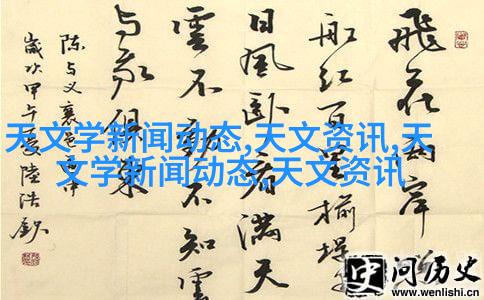 飛花兩岸
船紅百里榆堤
日風臥看滿天
雲不動不知雲
与我俱東
陈与义襄邑道中
歲次甲午夏陸浩
天文学新闻动态,天文资讯,天
文学新闻动态,天文资讯
问历史
www.wenlishi.cn